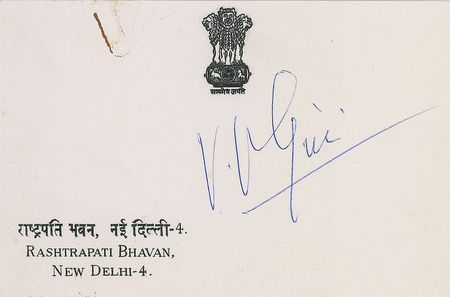 सत्यमेव जयते
V. V. Giri.
राष्ट्रपति भवन, नई दिल्ली-4.
RASHTRAPATI BHAVAN,
NEW DELHI-4.